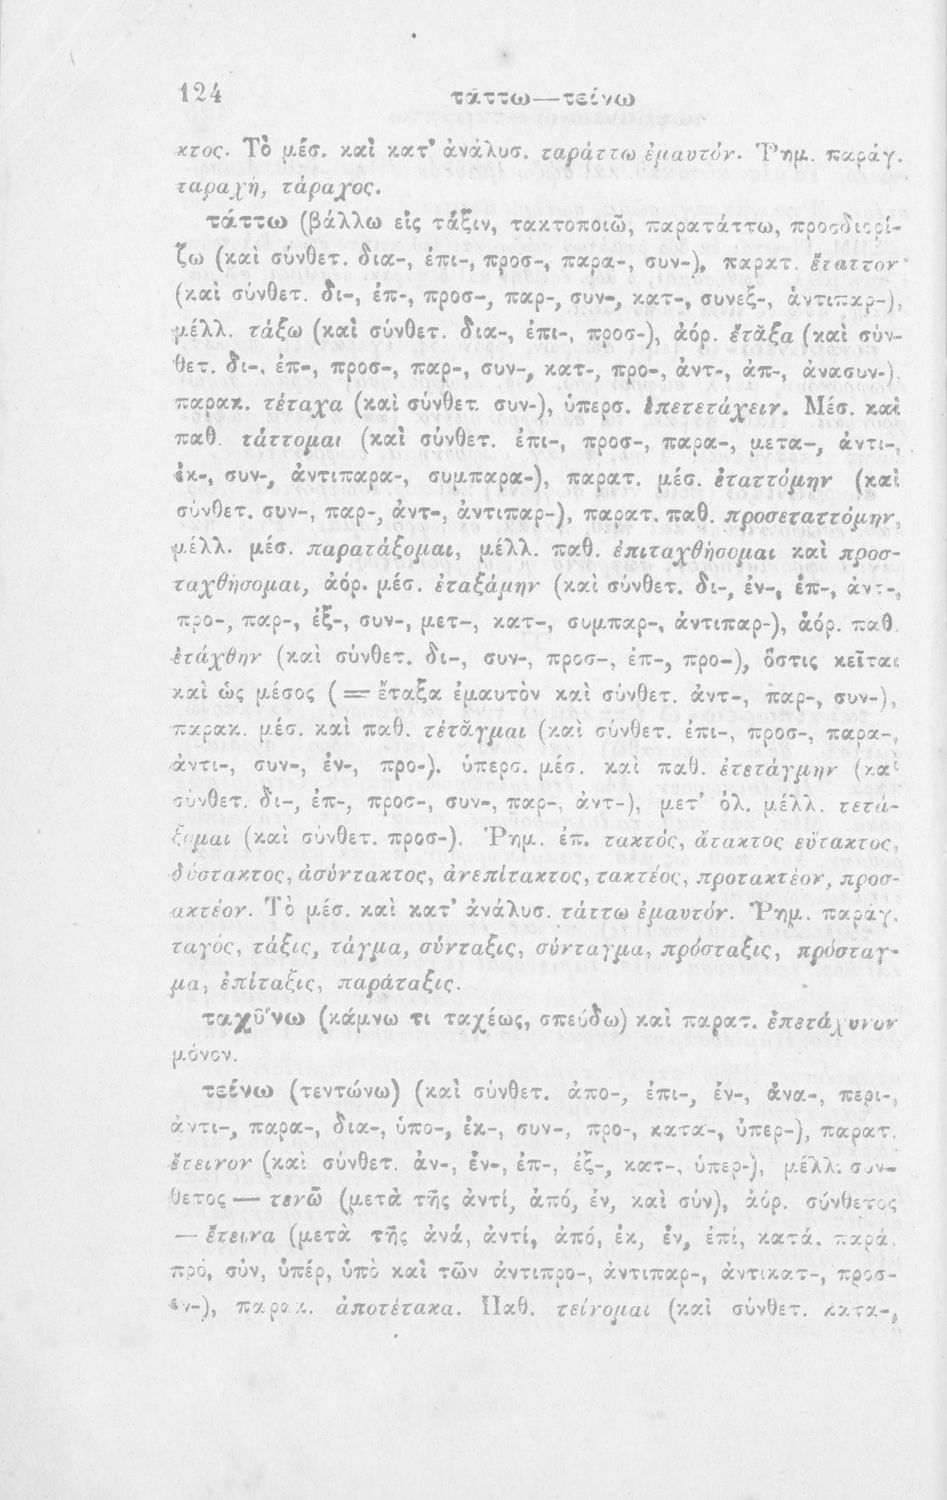 124 τάττω—τείνω
κτος. Τὸ μέσ. καὶ κατ' ἀνάλυσ. ταράττω ἐμαυτόν. Ῥημ. παράγ.
ταραχή, τάραχος.
τάττω (βάλλω εἰς τάξιν, τακτοποιῶ, παρατάττω, προσδιορί-
ζω (καὶ σύνθετ. δια-, ἐπι-, προσ-, παρα-, συν-), παρατ. ἔταττον
(καὶ σύνθετ. δι-, ἐπ-, προσ-, παρ-, συν-, κατ-, συνεξ-, ἀντιπαρ-),
μέλλ. τάξω (καὶ σύνθετ. δια-, ἐπι-, προσ-), ἀόρ. ἔτᾰξα (καὶ σύν-
θετ. δι-, ἐπ-, προσ-, παρ-, συν-, κατ-, προ-, ἀντ-, ἀπ-, ἀνασυν-)
παρακ. τέταχα (καὶ σύνθετ. συν-), ὑπερσ. ἐπετετάχειν. Μέσ. καὶ
παθ. τάττομαι (καὶ σύνθετ. ἐπι-, προσ-, παρα-, μετα-, ἀντι-,
ἐκ-, συν-, ἀντιπαρα-, συμπαρα-), παρατ. μέσ. ἐταττόμην (καὶ
σύνθετ. συν-, παρ-, ἀντ-, ἀντιπαρ-), παρατ. παθ. προσεταττόμην,
μέλλ. μέσ. παρατάξομαι, μέλλ. παθ. ἐπιταχθήσομαι καὶ προσ-
ταχθήσομαι, ἀόρ. μέσ. ἐταξάμην (καὶ σύνθετ. δι-, ἐν-, ἐπ-, ἀντ-,
προ-, παρ-, ἐξ-, συν-, μετ-, κατ-, συμπαρ-, ἀντιπαρ-), ἀόρ. παθ.
ἐτάχθην (καὶ σύνθετ. δι-, συν-, προσ-, ἐπ-, προ-), ὅστις κεῖται
καὶ ὡς μέσος (=ἔταξα ἐμαυτὸν καὶ σύνθετ. ἀντ-, παρ-, συν-),
παρακ. μέσ. καὶ παθ. τέτᾰγμαι (καὶ σύνθετ. ἐπι-, προσ-, παρα-,
ἀντι-, συν-, ἐν-, προ-). ὑπερσ. μέσ. καὶ παθ. ἐτετάγμην (καὶ
σύνθετ. δι-, ἐπ-, προσ-, συν-, παρ-, ἀντ-), μετ' ὀλ. μέλλ. τετά-
ξομαι (καὶ σύνθετ. προσ-). Ῥημ. ἐπ. τακτός, ἄτακτος εὔτακτος,
δύστακτος, ἀσύντακτος, ἀνεπίτακτος, τακτέος, προτακτέον, προσ-
ακτέον. Τὸ μέσ. καὶ κατ' ἀνάλυσ. τάττω ἐμαυτόν. Ῥημ. παράγ.
ταγός, τάξις, τάγμα, σύνταξις, σύνταγμα, πρόσταξις, πρόσταγ-
μα, ἐπίταξις, παράταξις.
ταχῡ́νω (κάμνω τι ταχέως, σπεύδω) καὶ παρατ. ἐπετάχυνον
μόνον.
τείνω (τεντώνω) (καὶ σύνθετ. ἀπο-, ἐπι-, ἐν-, ἀνα-, περι-,
ἀντι-, παρα-, δια-, ὑπο-, ἐκ-, συν-, προ-, κατα-, ὑπερ-), παρατ.
ἔτεινον (καὶ σύνθετ. ἀν-, ἐν-, ἐπ-, ἐξ-, κατ-, ὑπερ-), μέλλ. συν-
θετος — τενῶ (μετὰ τῆς ἀντί, ἀπό, ἐν, καὶ σύν), ἀόρ. σύνθετος
— ἔτεινα (μετὰ τῆς ἀνά, ἀντί, ἀπό, ἐκ, ἐν, ἐπί, κατά, παρά,
πρό, σύν, ὑπέρ, ὑπὸ καὶ τῶν ἀντιπρο-, ἀντιπαρ-, ἀντικατ-, προσ-
εν-), παρακ. ἀποτέτακα. Παθ. τείνομαι (καὶ σύνθετ. κατα-,